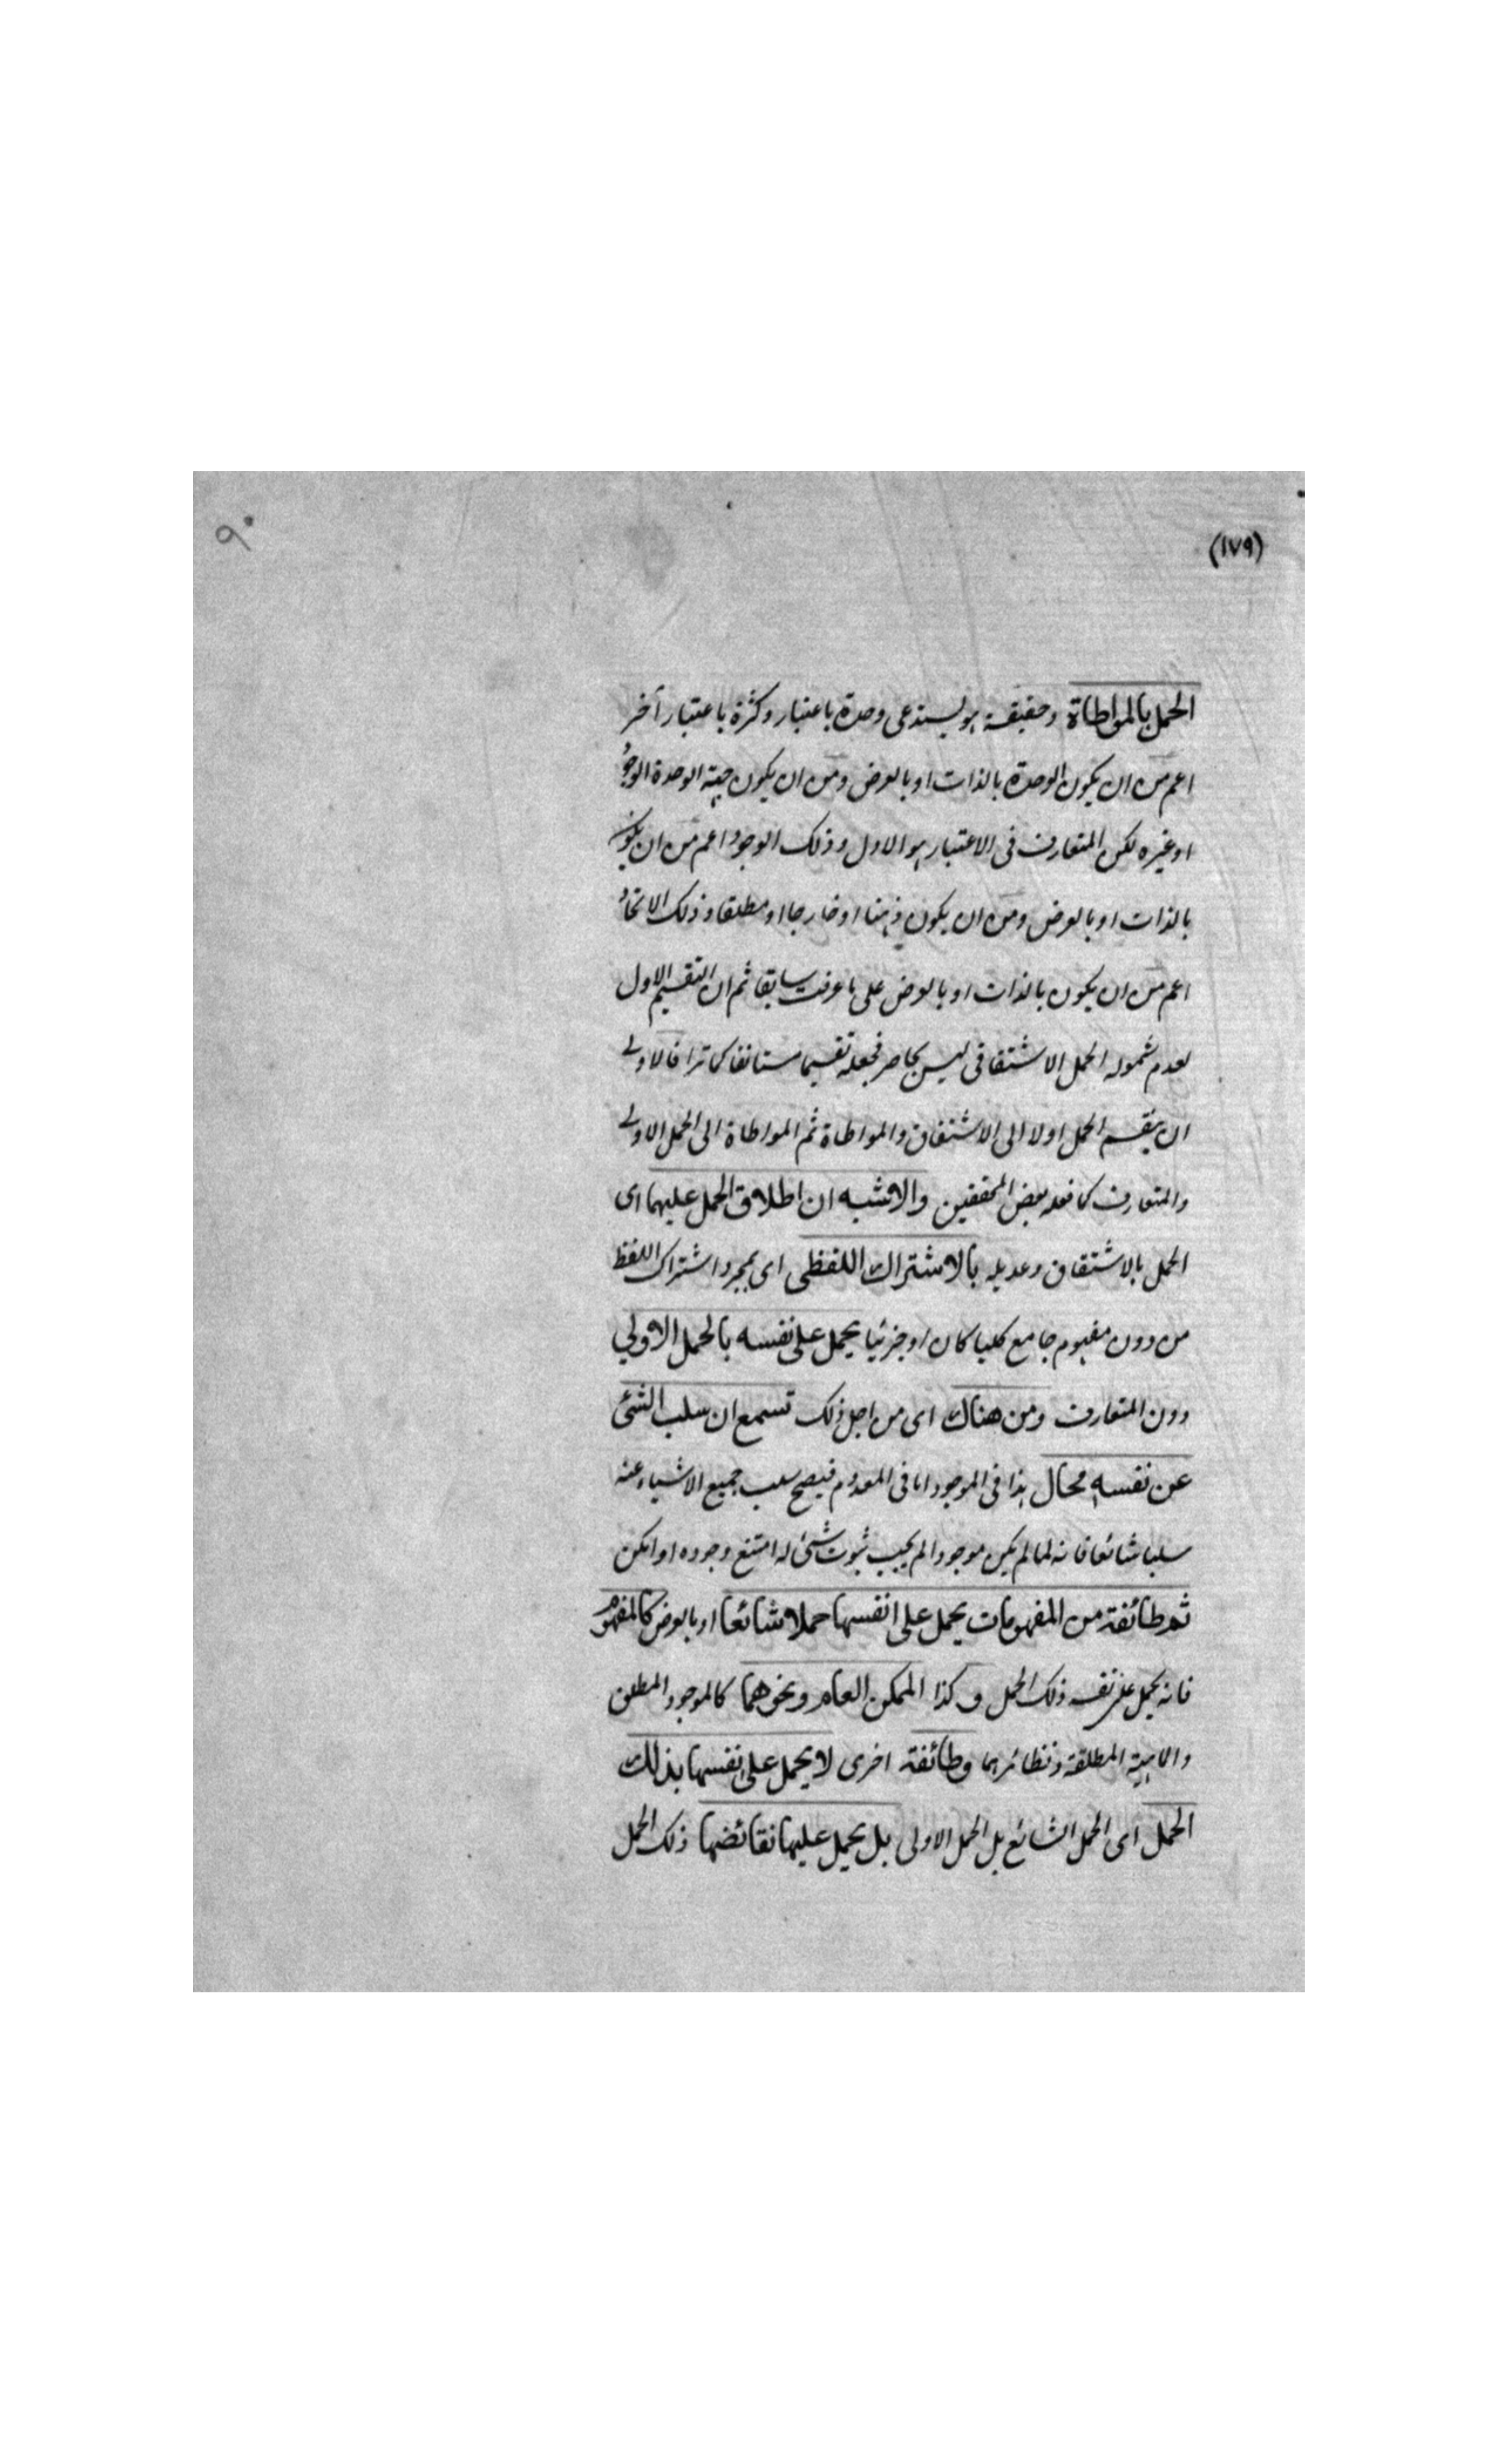 (١٧٩)
٩٠
الحمل بالمواطاة وحقيقته هو يستدعى وحدة باعتبار وكثرة باعتبار آخر
اعم من ان يكون الوحدة بالذات او بالعرض ومن ان يكون جهة الوحدة الوجود
او غيره لكن المتعارف فى الاعتبار هو الاول وذلك الوجود اعم من ان يكون
بالذات او بالعرض ومن ان يكون ذهنا او خارجا او مطلقا وذلك الاتحاد
اعم من ان يكون بالذات او بالعرض على ما عرفت سابقا ثم ان التقسيم الاول
لعدم شموله الحمل الاشتقاقى ليس بحاصر فجعله تقسيما مستانفا كما ترا فالاولى
ان ينقسم الحمل اولا الى الاشتقاق والمواطاة ثم المواطاة الى الحمل الاولى
والمتعارف كما فعله بعض المحققين والاشبه ان اطلاق الحمل عليهما اى
الحمل بالاشتقاق وعديله بالاشتراك اللفظى اى بمجرد اشتراك اللفظ
من دون مفهوم جامع كليا كان او جزئيا يحمل على نفسه بالحمل الاولي
دون المتعارف ومن هناك اى من اجل ذلك تسمع ان سلب الشئ
عن نفسه محال هذا فى الموجود اما فى المعدوم فيصح سلب جميع الاشياء عنه
سلبا شائعا فانه لما لم يكن موجودا لم يجب ثبوت شئ له امتنع وجوده او امكن
ثم طائفة من المفهومات يحمل على انفسها حملا شائعا او بالعرض كالمفهوم
فانه يحمل على نفسه ذلك الحمل وكذا الممكن العام ونحوهما كالموجود المطلق
والماهية المطلقة ونظائرهما وطائفة اخرى لا يحمل على نفسها بذلك
الحمل اى الحمل الشائع بل الحمل الاولى بل يحمل عليها نقائضها ذلك الحمل